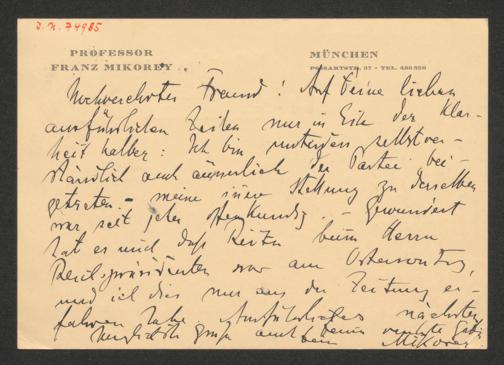 I. N. 74985
PROFESSOR
FRANZ MIKOREY
MÜNCHEN
POSSARTSTR. 37 • TEL. 480350
Hochverehrter Freund! Auf Deine lieben
ausführlichen Zeilen nur in Eile der Klar-
heit halber: Ich bin selbstver-
ständlich auch äusserlich der Partei bei-
getreten – meine innere Stellung zu derselben
war seit jeher offenkundig. – Gewundert
hat es mich daß beim Herrn
Reichspräsidenten war am Ostersonntag,
und ich dies nur aus der Zeitung er-
fahren habe. Ausführliches nächstens
Herzlichst auch Deine
Dein Mikorey